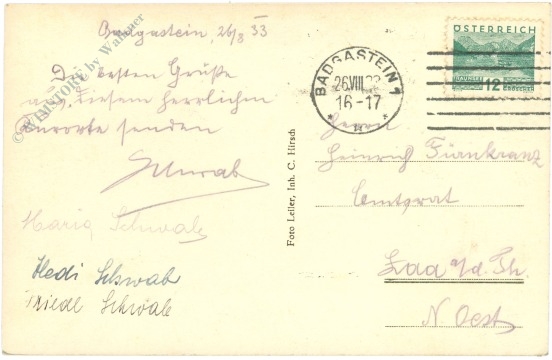 Badgastein, 26/8 33
Die besten Grüße
aus diesem herrlichen
Kurorte senden
Schwab
Maria Schwab
Hedi Schwab
Friedl Schwab
© HISTORY by Wallner
Foto Leller, Inh. C. Hirsch
BADGASTEIN 1
26.VIII.33
16-17
ÖSTERREICH
12
Herrn
Heinrich Fürnkranz
Amtsrat
Laa a/d. Th.
N. Oest.